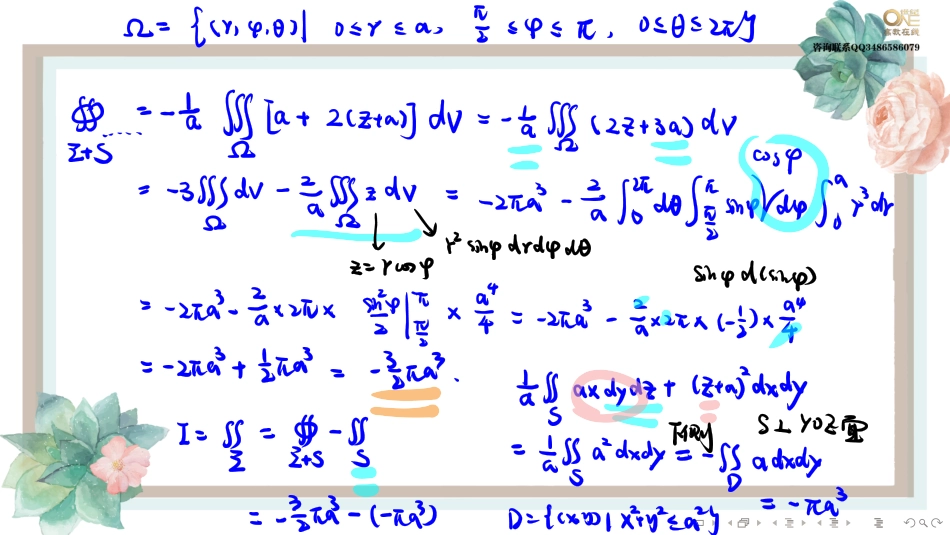 Ω = {(r, φ, θ) | 0≤r≤a, π/2 ≤φ≤π, 0≤θ≤2π}
咨询联系QQ3486586079
∯_{Σ+S} ...... = -1/a ∭_Ω [a + 2(z+a)] dV = -1/a ∭_Ω (2z+3a) dV
cosφ
= -3∭_Ω dV - 2/a ∭_Ω z dV = -2πa³ - 2/a ∫_0^{2π} dθ ∫_{π/2}^{π} sinφ√dφ ∫_0^a r³dr
z = r cosφ
r² sinφ dr dφ dθ
sinφ d(sinφ)
= -2πa³ - 2/a × 2π × sin²φ/2 |_{π/2}^{π} × a⁴/4 = -2πa³ - 2/a × 2π × (-1/2) × a⁴/4
= -2πa³ + 1/2 πa³ = -3/2 πa³.
1/a ∬_S ax dydz + (z+a)² dxdy
S⊥YOZ面
I = ∬_Σ = ∯_{Σ+S} - ∬_S
= 1/a ∬_S a² dxdy = -∬_D a dxdy
= -3/2 πa³ - (-πa³)
D = {(x,y) | x²+y² ≤ a²}
= -πa³